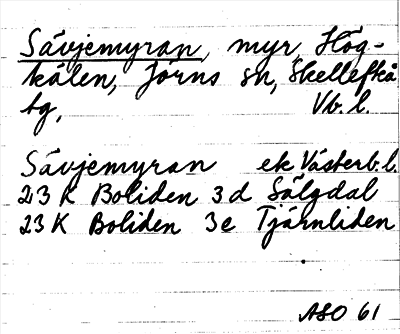 Sävjemyran, myr, Hög-
kälen, Jörns sn, Skellefteå
tg, Vb.l.
Sävjemyran ek Västerb.l.
23 K Boliden 3d Sälgdal
23 K Boliden 3e Tjärnliden
ASO 61